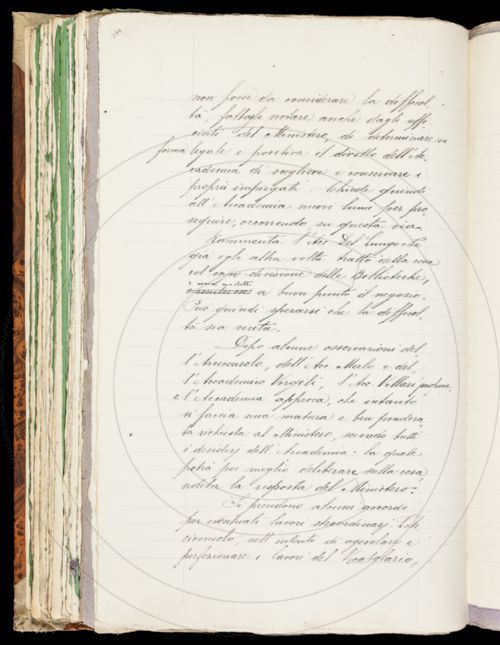 non fosse da considerare la difficol
tà fattagli notare anche dagli uffi
ciali del Ministero, di determinare in
forma legale e positiva il diritto dell'Ac
cademia di scegliere e conservare i
proprii impiegati. Chiede quindi
all'Accademia nuovi lumi per pro
seguire, occorrendo, su questa via.
Rammenta l'Acc. Del Lungo che
già egli altra volta trattò della cosa
col capo divisione delle Biblioteche,
a buon punto il negozio.
Può quindi sperarsi che la difficol
tà sia vinta.
Dopo alcune osservazioni del
l'Arciconsolo, dell'Acc. Merlo e del
l'Accademico Vergili, l'Acc. Villari propone,
e l'Accademia approva, che intanto
si faccia una matura e ben pondera
ta richiesta al Ministero, secondo tutti
i desiderj dell'Accademia: la quale
potrà poi meglio deliberare sulla cosa,
udita la risposta del Ministero.
Si prendono alcuni accordi
per eventuali lavori straordinarj
nell'intento di agevolare e
perfezionare i lavori del Vocabolario,